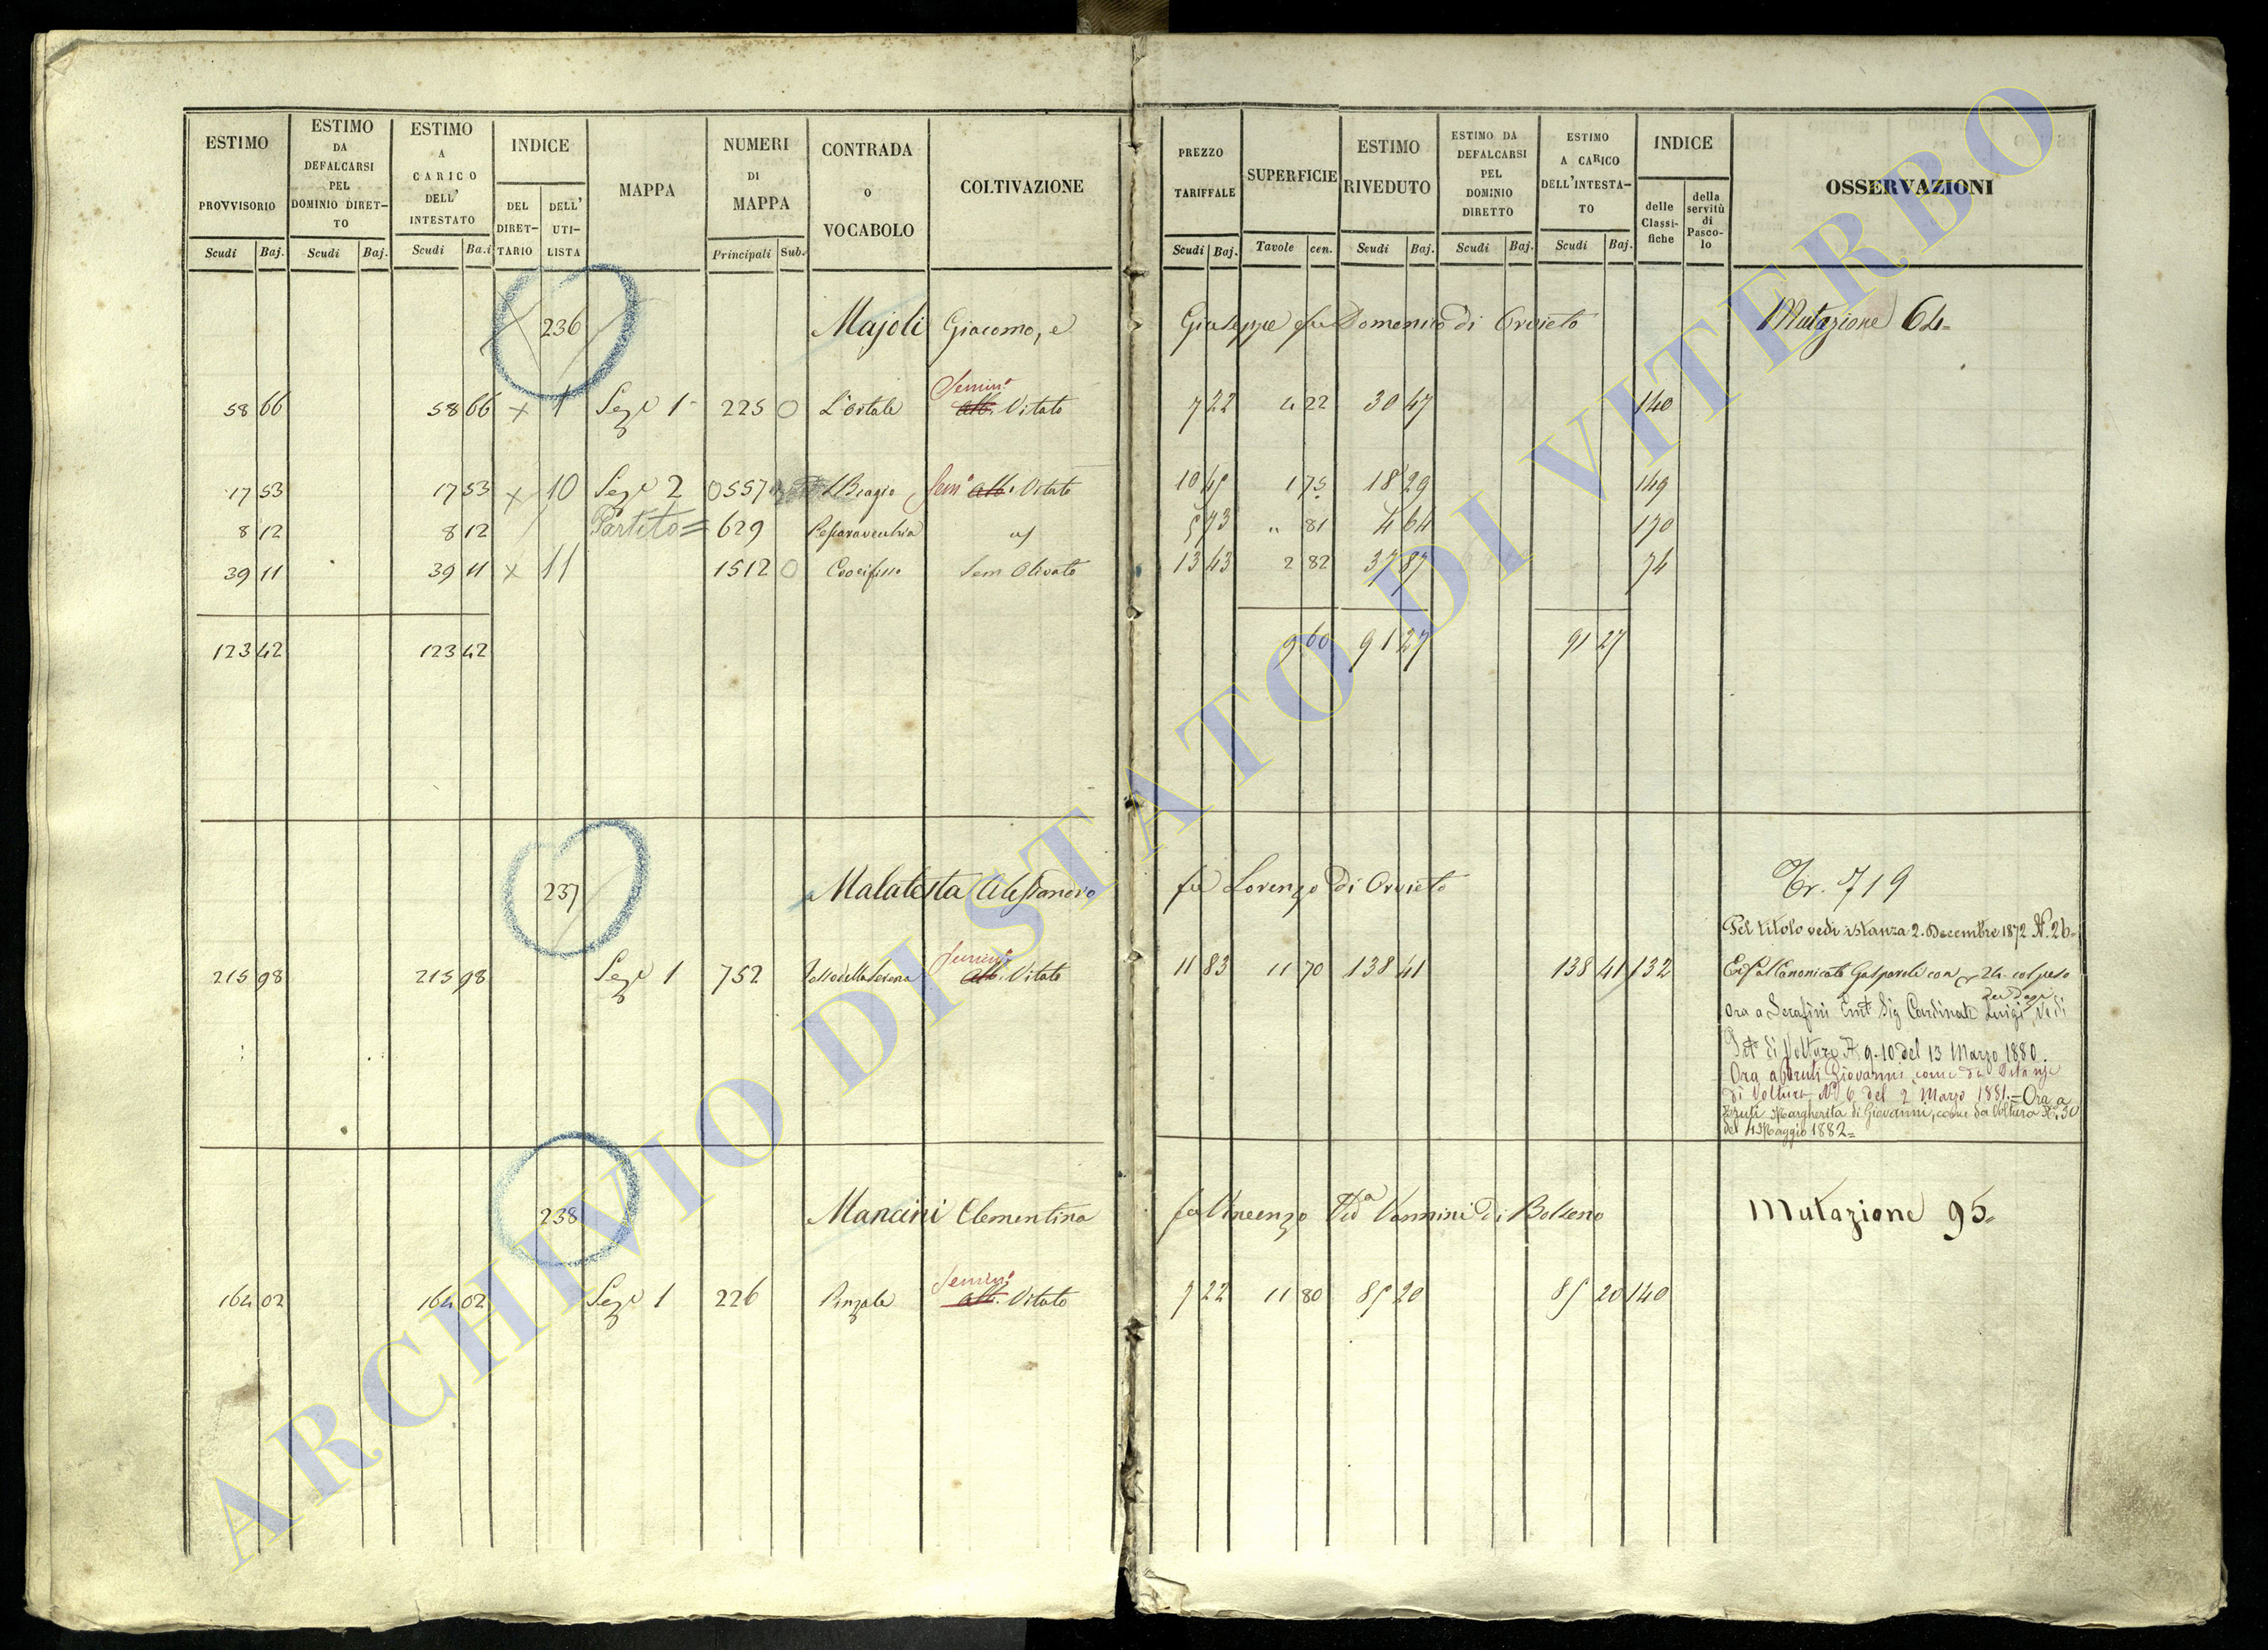 ESTIMO PROVVISORIO
Scudi Baj.
ESTIMO DA DEFALCARSI PEL DOMINIO DIRET-TO
Scudi Baj.
ESTIMO A CARICO DELL' INTESTATO
Scudi Ba.i
INDICE
DEL DIRET-TARIO
DELL' UTI-LISTA
MAPPA
NUMERI DI MAPPA
Principali Sub.
CONTRADA o VOCABOLO
COLTIVAZIONE
PREZZO TARIFFALE
Scudi Baj.
SUPERFICIE
Tavole cen.
ESTIMO RIVEDUTO
Scudi Baj.
ESTIMO DA DEFALCARSI PEL DOMINIO DIRETTO
Scudi Baj.
ESTIMO A CARICO DELL'INTESTA-TO
Scudi Baj.
INDICE
delle Classi-fiche
della servitù di Pasco-lo
OSSERVAZIONI
236 Majoli Giacomo, e Giuseppe fu Domenico di Orvieto Mutazione 64=
58 66 58 66 x 1 Sez.e 1 225 0 L'Ortale Semin.o alb. Vitato 7 22 4 22 30 47 140
17 53 17 53 x 10 Sez.e 2 0557 S Biagio Sem.o alb. Vitato 10 45 1 75 18 29 149
8 12 8 12 Partito= 629 5 73 " 81 4 64 170
39 11 39 11 x 11 1512 0 Crocifisso Sem Olivato 13 43 2 82 37 87 74
123 42 123 42 9 60 91 27 91 27
237 Malatesta Alessandro fu Lorenzo di Orvieto Tr. 719
Pel titolo vedi istanza 2. Decembre 1872 N. 26=
215 98 215 98 Sez.e 1 752 Semin.o alb. Vitato 11 83 11 70 138 41 138 41 132
Ora a Serafini Sig Cardinale Luigi Vedi
di Voltura N. 9-10 del 13 Marzo 1880.
Ora a Bruti Giovanni come da Istanza
di Voltura N. 6 del 2 Marzo 1881.= Ora a
Bruti Margherita di Giovanni, come da Voltura N. 30
del 4 Maggio 1882=
238 Mancini Clementina fu Vincenzo Ved.a Vannini di Bolseno Mutazione 95=
164 02 164 02 Sez.e 1 226 Pinzale Semin.o alb. Vitato 7 22 11 80 85 20 85 20 140
ARCHIVIO DI STATO DI VITERBO